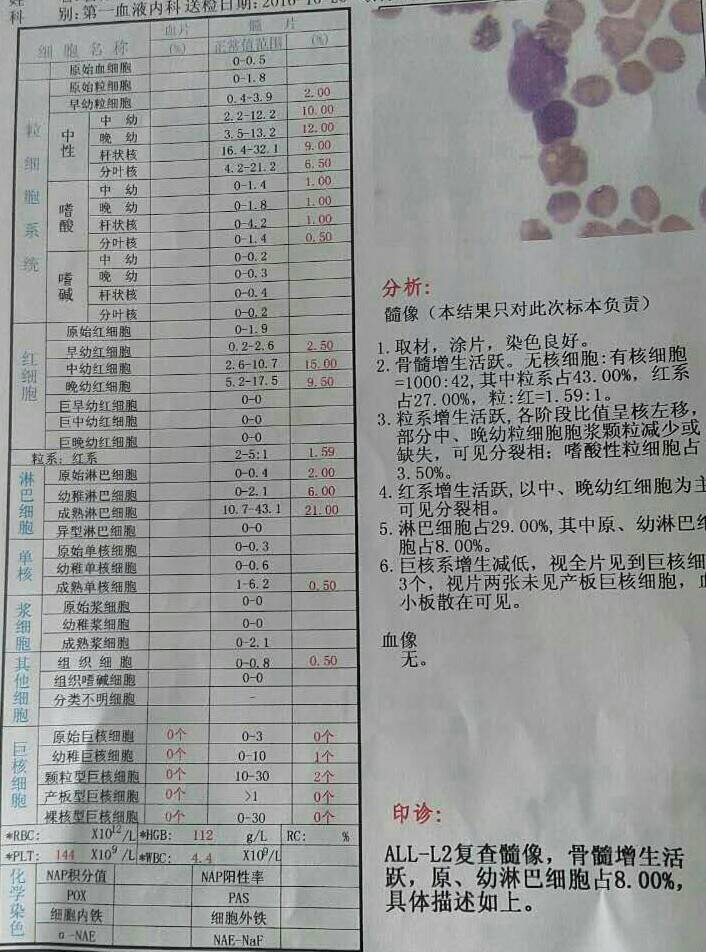 科 别:第一血液内科 送检日期:
细 胞 名 称 血片(%) 髓 片
正常值范围 (%)
原始血细胞 0-0.5
粒细胞系统
原始粒细胞 0-1.8
早幼粒细胞 0.4-3.9 2.00
中性
中 幼 2.2-12.2 10.00
晚 幼 3.5-13.2 12.00
杆状核 16.4-32.1 9.00
分叶核 4.2-21.2 6.50
嗜酸
中 幼 0-1.4 1.00
晚 幼 0-1.8 1.00
杆状核 0-4.2 1.00
分叶核 0-1.4 0.50
嗜碱
中 幼 0-0.2
晚 幼 0-0.3
杆状核 0-0.4
分叶核 0-0.2
红细胞
原始红细胞 0-1.9
早幼红细胞 0.2-2.6 2.50
中幼红细胞 2.6-10.7 15.00
晚幼红细胞 5.2-17.5 9.50
巨早幼红细胞 0-0
巨中幼红细胞 0-0
巨晚幼红细胞 0-0
粒系: 红系 2-5:1 1.59
淋巴细胞
原始淋巴细胞 0-0.4 2.00
幼稚淋巴细胞 0-2.1 6.00
成熟淋巴细胞 10.7-43.1 21.00
异型淋巴细胞 0-0
单核
原始单核细胞 0-0.3
幼稚单核细胞 0-0.6
成熟单核细胞 1-6.2 0.50
浆细胞
原始浆细胞 0-0
幼稚浆细胞 0-0
成熟浆细胞 0-2.1
其他细胞
组 织 细 胞 0-0.8 0.50
组织嗜碱细胞 0-0
分类不明细胞 -
巨核细胞
原始巨核细胞 0个 0-3 0个
幼稚巨核细胞 0个 0-10 1个
颗粒型巨核细胞 0个 10-30 2个
产板型巨核细胞 0个 >1 0个
裸核型巨核细胞 0个 0-30 0个
*RBC: X10^12/L *HGB: 112 g/L RC: %
*PLT: 144 X10^9/L *WBC: 4.4 X10^9/L
化学染色
NAP积分值 NAP阳性率
POX PAS
细胞内铁 细胞外铁
α-NAE NAE-NaF
分析:
髓像(本结果只对此次标本负责)
1. 取材, 涂片, 染色良好。
2. 骨髓增生活跃。无核细胞:有核细胞
=1000:42,其中粒系占43.00%, 红系
占27.00%, 粒:红=1.59:1。
3. 粒系增生活跃,各阶段比值呈核左移,
部分中、晚幼粒细胞胞浆颗粒减少或
缺失, 可见分裂相; 嗜酸性粒细胞占
3.50%。
4. 红系增生活跃,以中、晚幼红细胞为主
可见分裂相。
5. 淋巴细胞占29.00%,其中原、幼淋巴细
胞占8.00%。
6. 巨核系增生减低, 视全片见到巨核细
3个, 视片两张未见产板巨核细胞,
小板散在可见。
血像
无。
印诊:
ALL-L2复查髓像, 骨髓增生活
跃, 原、幼淋巴细胞占8.00%,
具体描述如上。